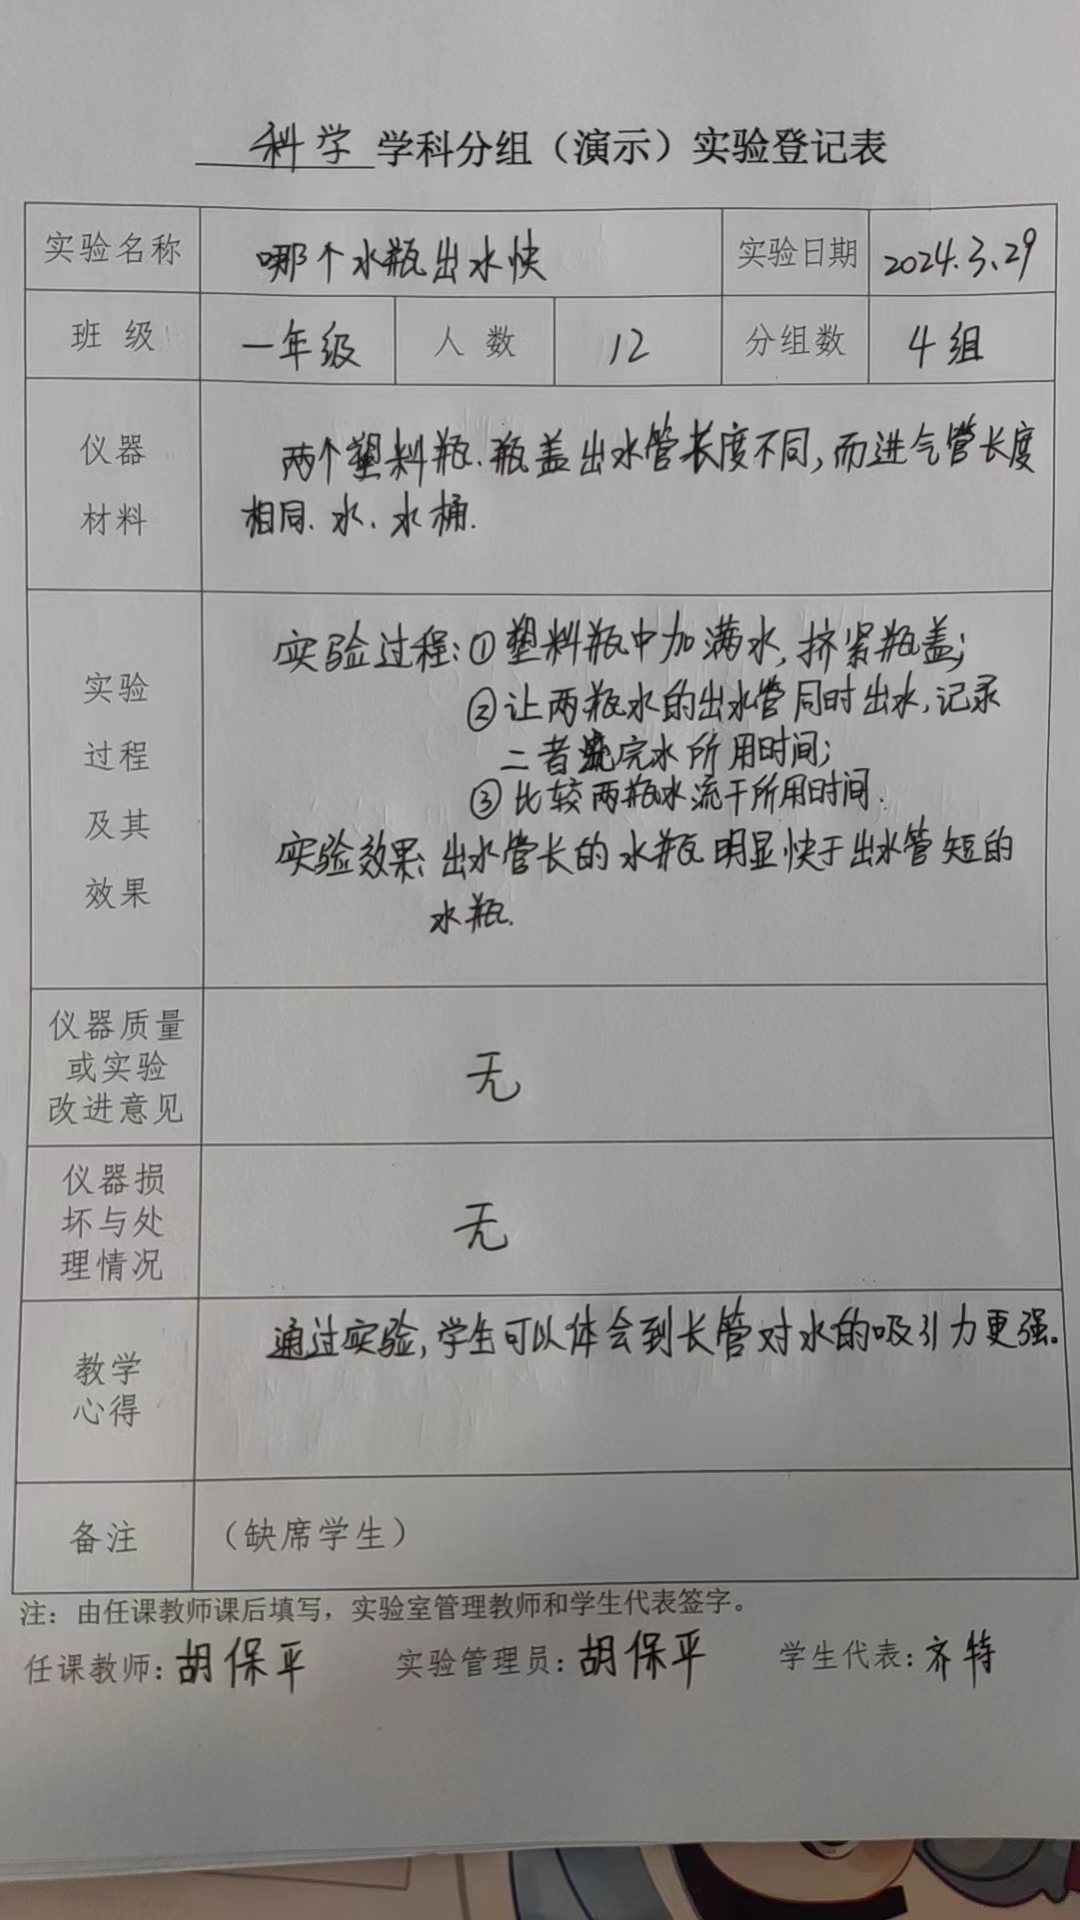 科学 学科分组（演示）实验登记表
实验名称 哪个水瓶出水快 实验日期 2024.3.29
班 级 一年级 人 数 12 分组数 4组
仪器
材料
两个塑料瓶.瓶盖出水管长度不同,而进气管长度
相同.水.水桶.
实验
过程
及其
效果
实验过程:①塑料瓶中加满水,挤紧瓶盖;
②让两瓶水的出水管同时出水,记录
二者流完水所用时间;
③比较两瓶水流干所用时间.
实验效果:出水管长的水瓶明显快于出水管短的
水瓶.
仪器质量
或实验
改进意见
无
仪器损
坏与处
理情况
无
教学
心得
通过实验,学生可以体会到长管对水的吸引力更强。
备注 （缺席学生）
注：由任课教师课后填写，实验室管理教师和学生代表签字。
任课教师:胡保平 实验管理员:胡保平 学生代表:齐特